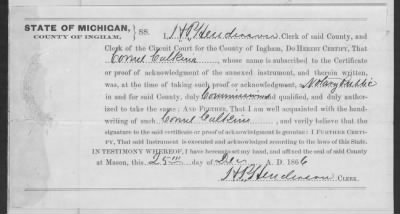 STATE OF MICHIGAN, } SS. I, H P Henderson, Clerk of said County, and
COUNTY OF INGHAM.
Clerk of the Circuit Court for the County of Ingham, DO HEREBY CERTIFY, That
Cornel Calkins, whose name is subscribed to the Certificate
or proof of acknowledgment of the annexed instrument, and therein written,
was, at the time of taking such proof or acknowledgment, a Notary Public
in and for said County, duly Commissioned and qualified, and duly author-
ized to take the same; AND FURTHER, That I am well acquainted with the hand-
writing of such Cornel Calkins, and verily believe that the
signature to the said certificate or proof of acknowledgment is genuine: I FURTHER CERTI-
FY, That said Instrument is executed and acknowledged according to the laws of this State.
IN TESTIMONY WHEREOF, I have hereunto set my hand, and affixed the seal of said County
at Mason, this 25th day of Dec A. D. 1866
H P Henderson CLERK.